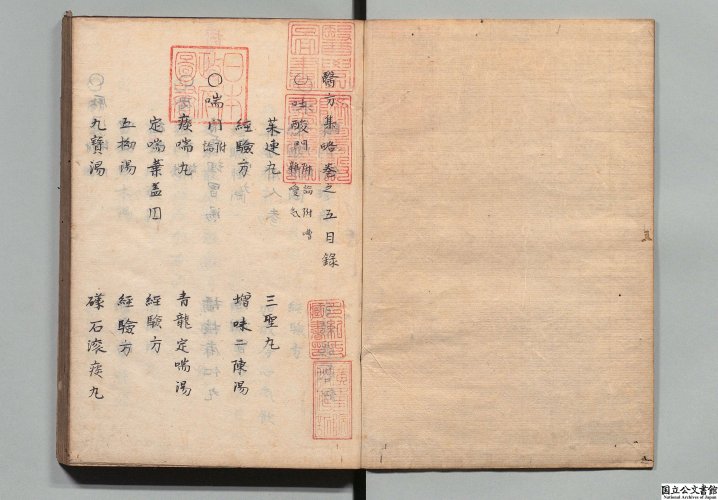 醫方集略卷之五目錄
○吐酸門附論附嘈雜噯氣
茱連丸
三聖丸
經驗方
增味二陳湯
○喘門附論
痰喘丸
青龍定喘湯
定喘葉盖囬
經驗方
五拗湯
經驗方
九寶湯
礞石滚痰丸
日本政府圖書
国立公文書館
National Archives of Japan